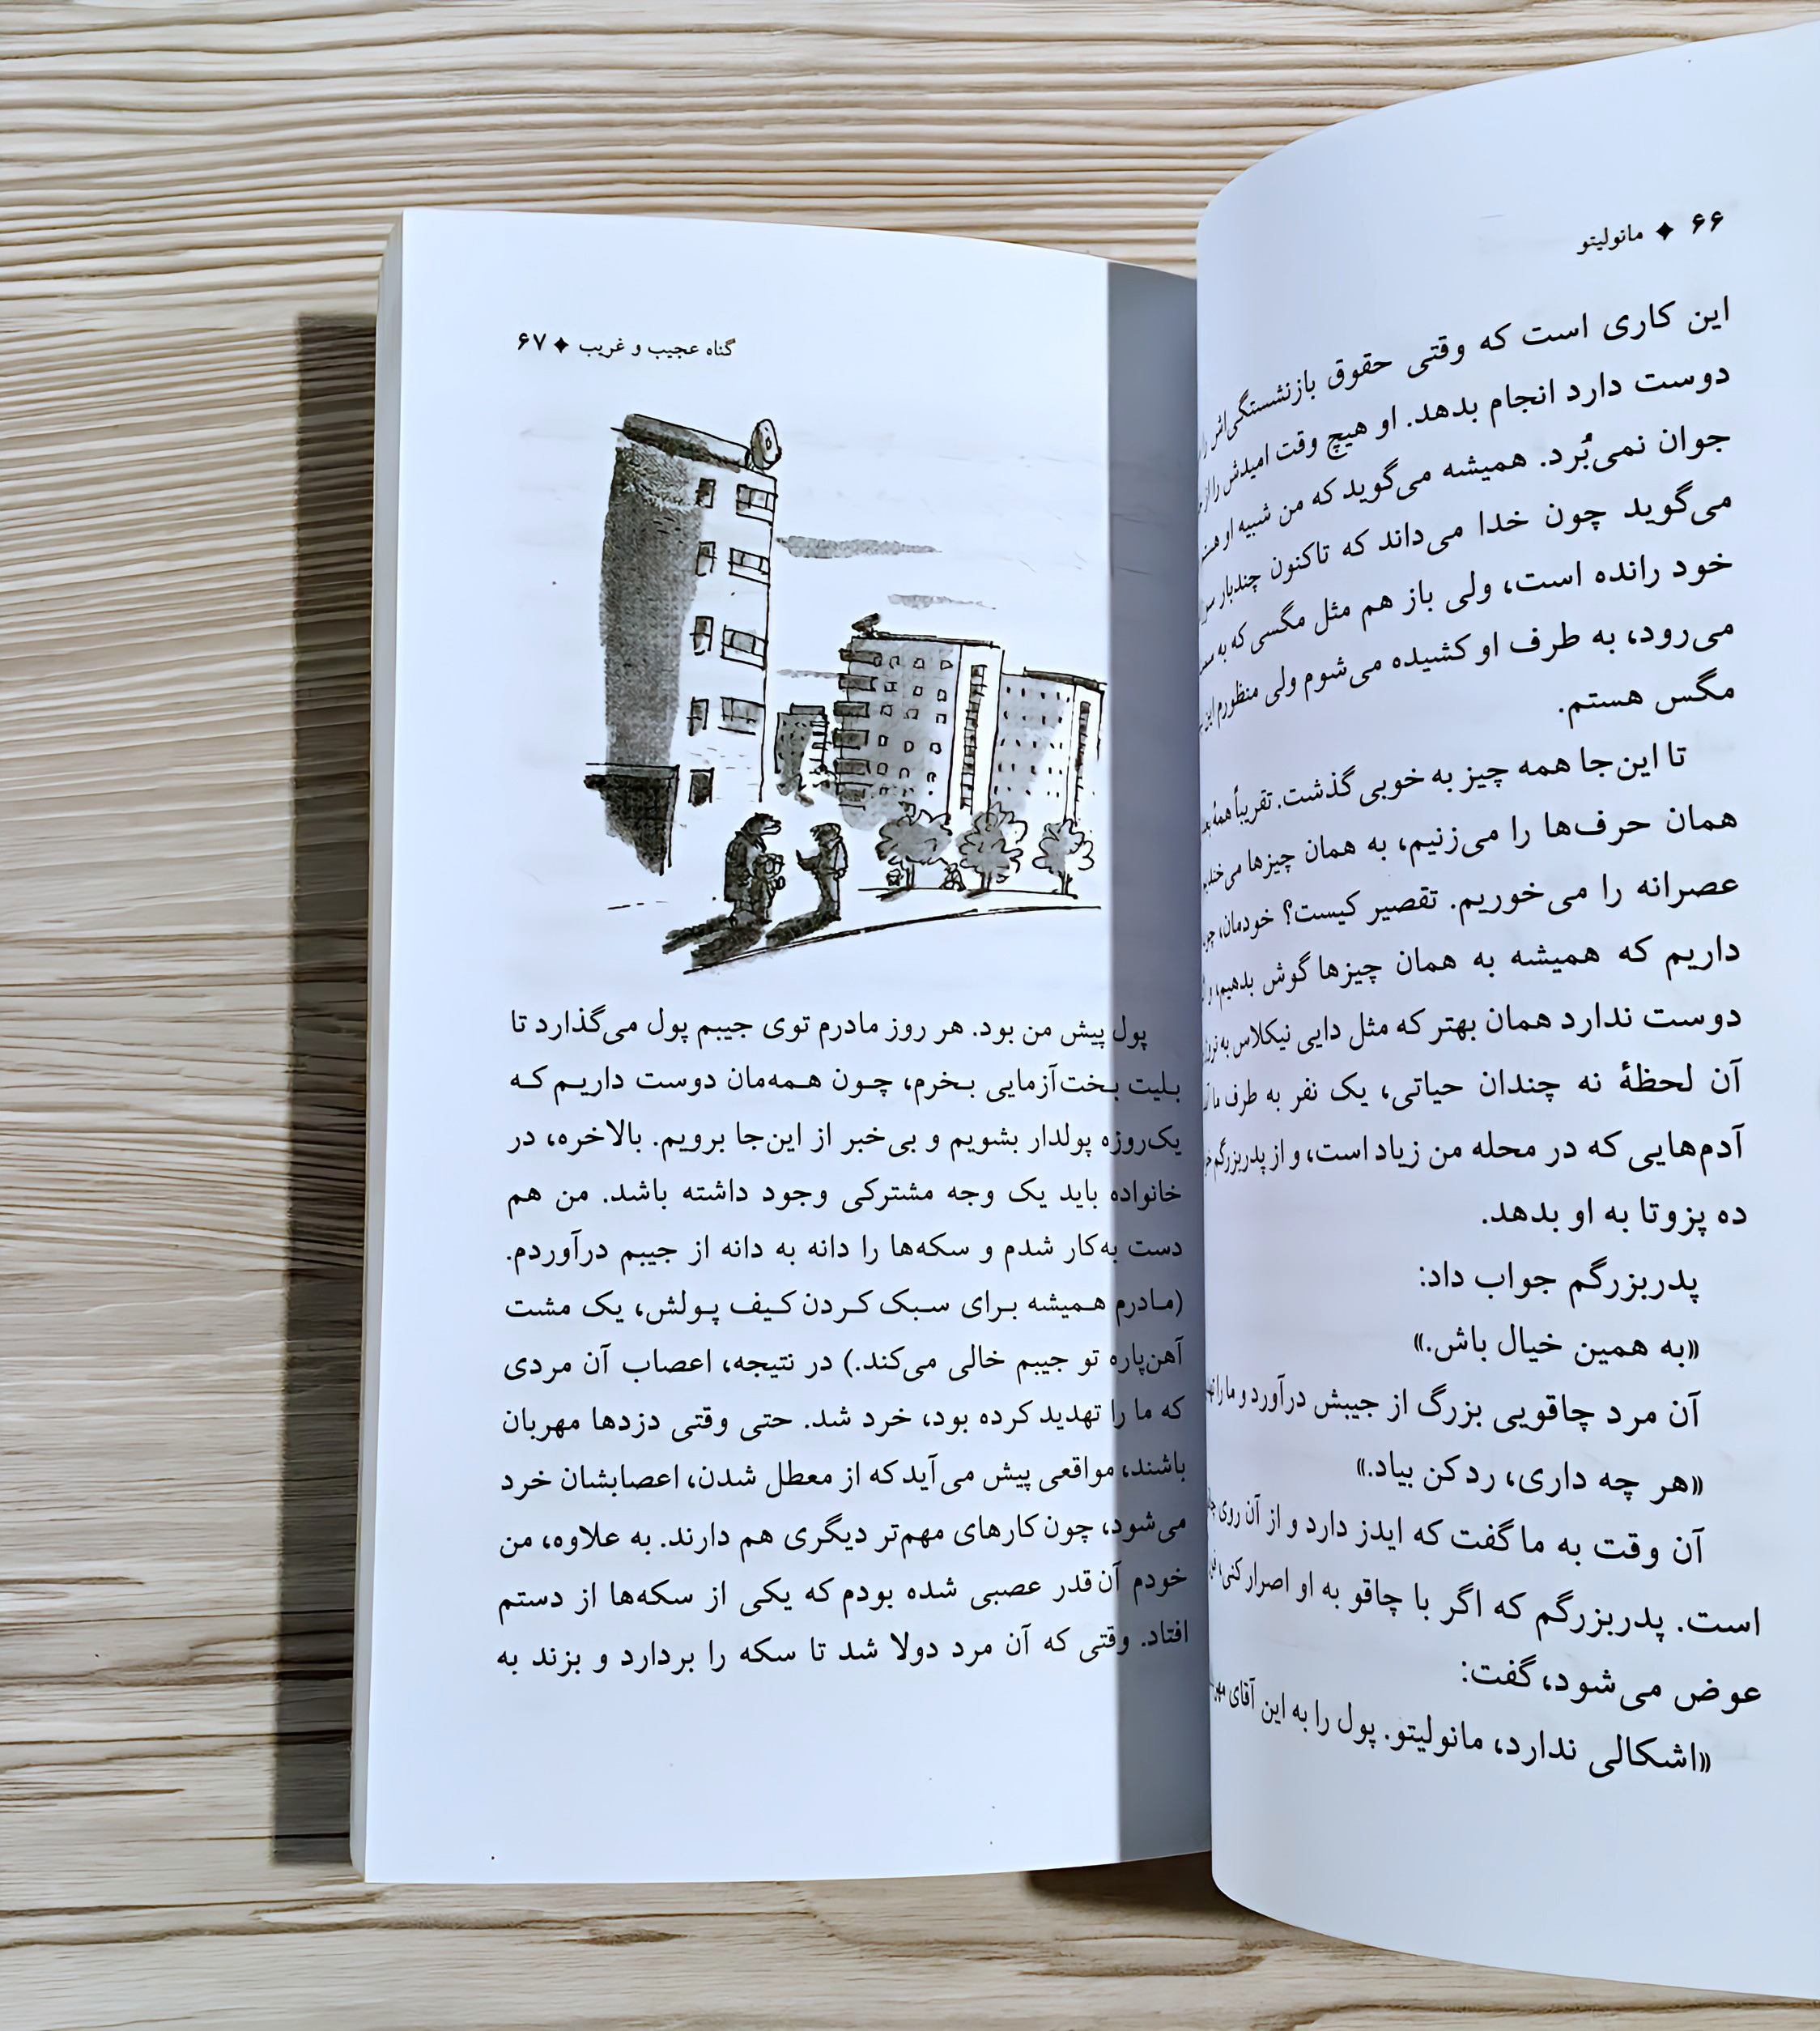 ۶۶ ✦ مانولیتو
این کاری است که وقتی حقوق بازنشستگی‌اش را
دوست دارد انجام بدهد. او هیچ وقت امیدش را از
جوان نمی‌بُرد. همیشه می‌گوید که من شبیه او
می‌گوید چون خدا می‌داند که تاکنون چندبار
خود رانده است، ولی باز هم مثل مگسی که به
می‌رود، به طرف او کشیده می‌شوم ولی منظورم این
مگس هستم.
تا این‌جا همه چیز به خوبی گذشت. تقریباً همهٔ
همان حرف‌ها را می‌زنیم، به همان چیزها
عصرانه را می‌خوریم. تقصیر کیست؟ خودمان،
داریم که همیشه به همان چیزها گوش بدهیم، و
دوست ندارد همان بهتر که مثل دایی نیکلاس به
آن لحظهٔ نه چندان حیاتی، یک نفر به طرف ما
آدم‌هایی که در محله من زیاد است، و از پدربزرگم
ده پزوتا به او بدهد.
پدربزرگم جواب داد:
«به همین خیال باش.»
آن مرد چاقویی بزرگ از جیبش درآورد و ما را
«هر چه داری، رد کن بیاد.»
آن وقت به ما گفت که ایدز دارد و از آن روی
است. پدربزرگم که اگر با چاقو به او اصرار کنی،
عوض می‌شود، گفت:
«اشکالی ندارد، مانولیتو. پول را به این آقای
گناه عجیب و غریب ✦ ۶۷
پول پیش من بود. هر روز مادرم توی جیبم پول می‌گذارد تا
بلیت بخت‌آزمایی بخرم، چون همه‌مان دوست داریم که
یک‌روزه پولدار بشویم و بی‌خبر از این‌جا برویم. بالاخره، در
خانواده باید یک وجه مشترکی وجود داشته باشد. من هم
دست به‌کار شدم و سکه‌ها را دانه به دانه از جیبم درآوردم.
(مادرم همیشه برای سبک کردن کیف پولش، یک مشت
آهن‌پاره تو جیبم خالی می‌کند.) در نتیجه، اعصاب آن مردی
که ما را تهدید کرده بود، خرد شد. حتی وقتی دزدها مهربان
باشند، مواقعی پیش می‌آید که از معطل شدن، اعصابشان خرد
می‌شود، چون کارهای مهم‌تر دیگری هم دارند. به علاوه، من
خودم آن‌قدر عصبی شده بودم که یکی از سکه‌ها از دستم
افتاد. وقتی که آن مرد دولا شد تا سکه را بردارد و بزند به